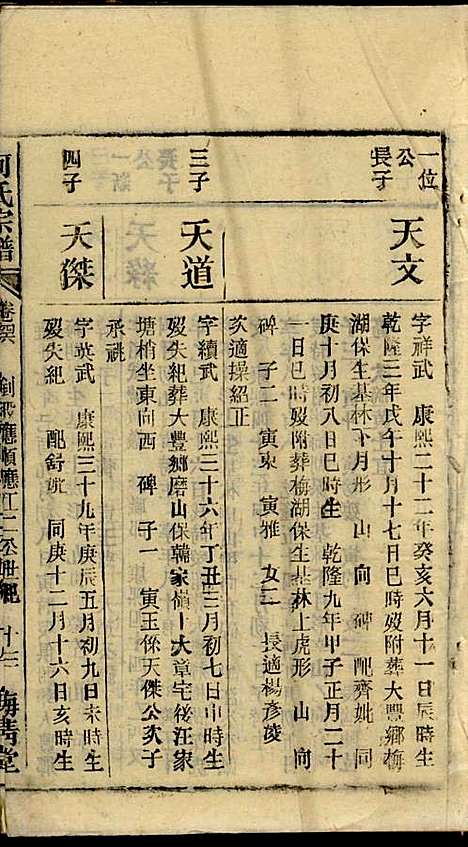 一位
公
長子
天文
字祥武 康熙二十二年癸亥六月十一日辰時生
乾隆三年戊午十月十七日巳時歿附葬大豐鄉梅
湖保生基林下月形 山 向 碑 配齊妣 同
庚十月初八日巳時生 乾隆九年甲子正月二十
一日巳時歿附葬梅湖保生基林上虎形 山 向
碑 子二 寅東 寅雅 女二 長適楊彥凌
次適操紹正
三子
天道
字續武 康熙三十六年丁丑三月初七日申時生
歿失紀葬大豐鄉磨山保瑞家嶺大章宅後汪家
塘梢坐東向西 碑 子一 寅玉係天傑公次子
承祧
四子
天傑
字英武 康熙三十九年庚辰五月初九日未時生
歿失紀 配舒妣 同庚十二月十六日亥時生
何氏宗譜